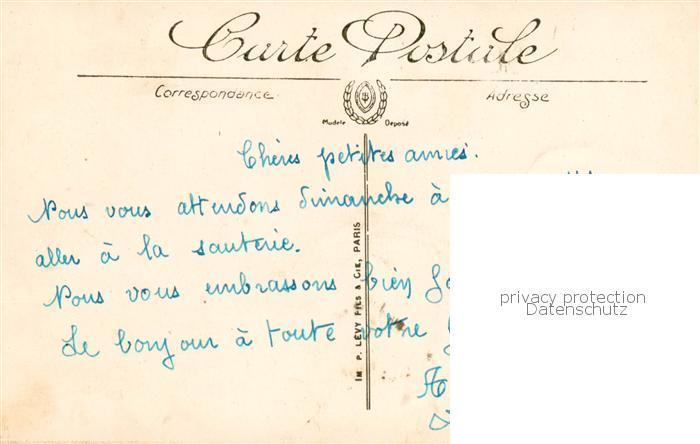 Carte Postale
Correspondance
Adresse
Modèle Déposé
Chères petites amies.
Nous vous attendons dimanche à
aller à la sauterie.
Nous vous embrassons bien
Le bonjour à toute votre
IM P. LÉVY FILS & CIE, PARIS
privacy protection
Datenschutz